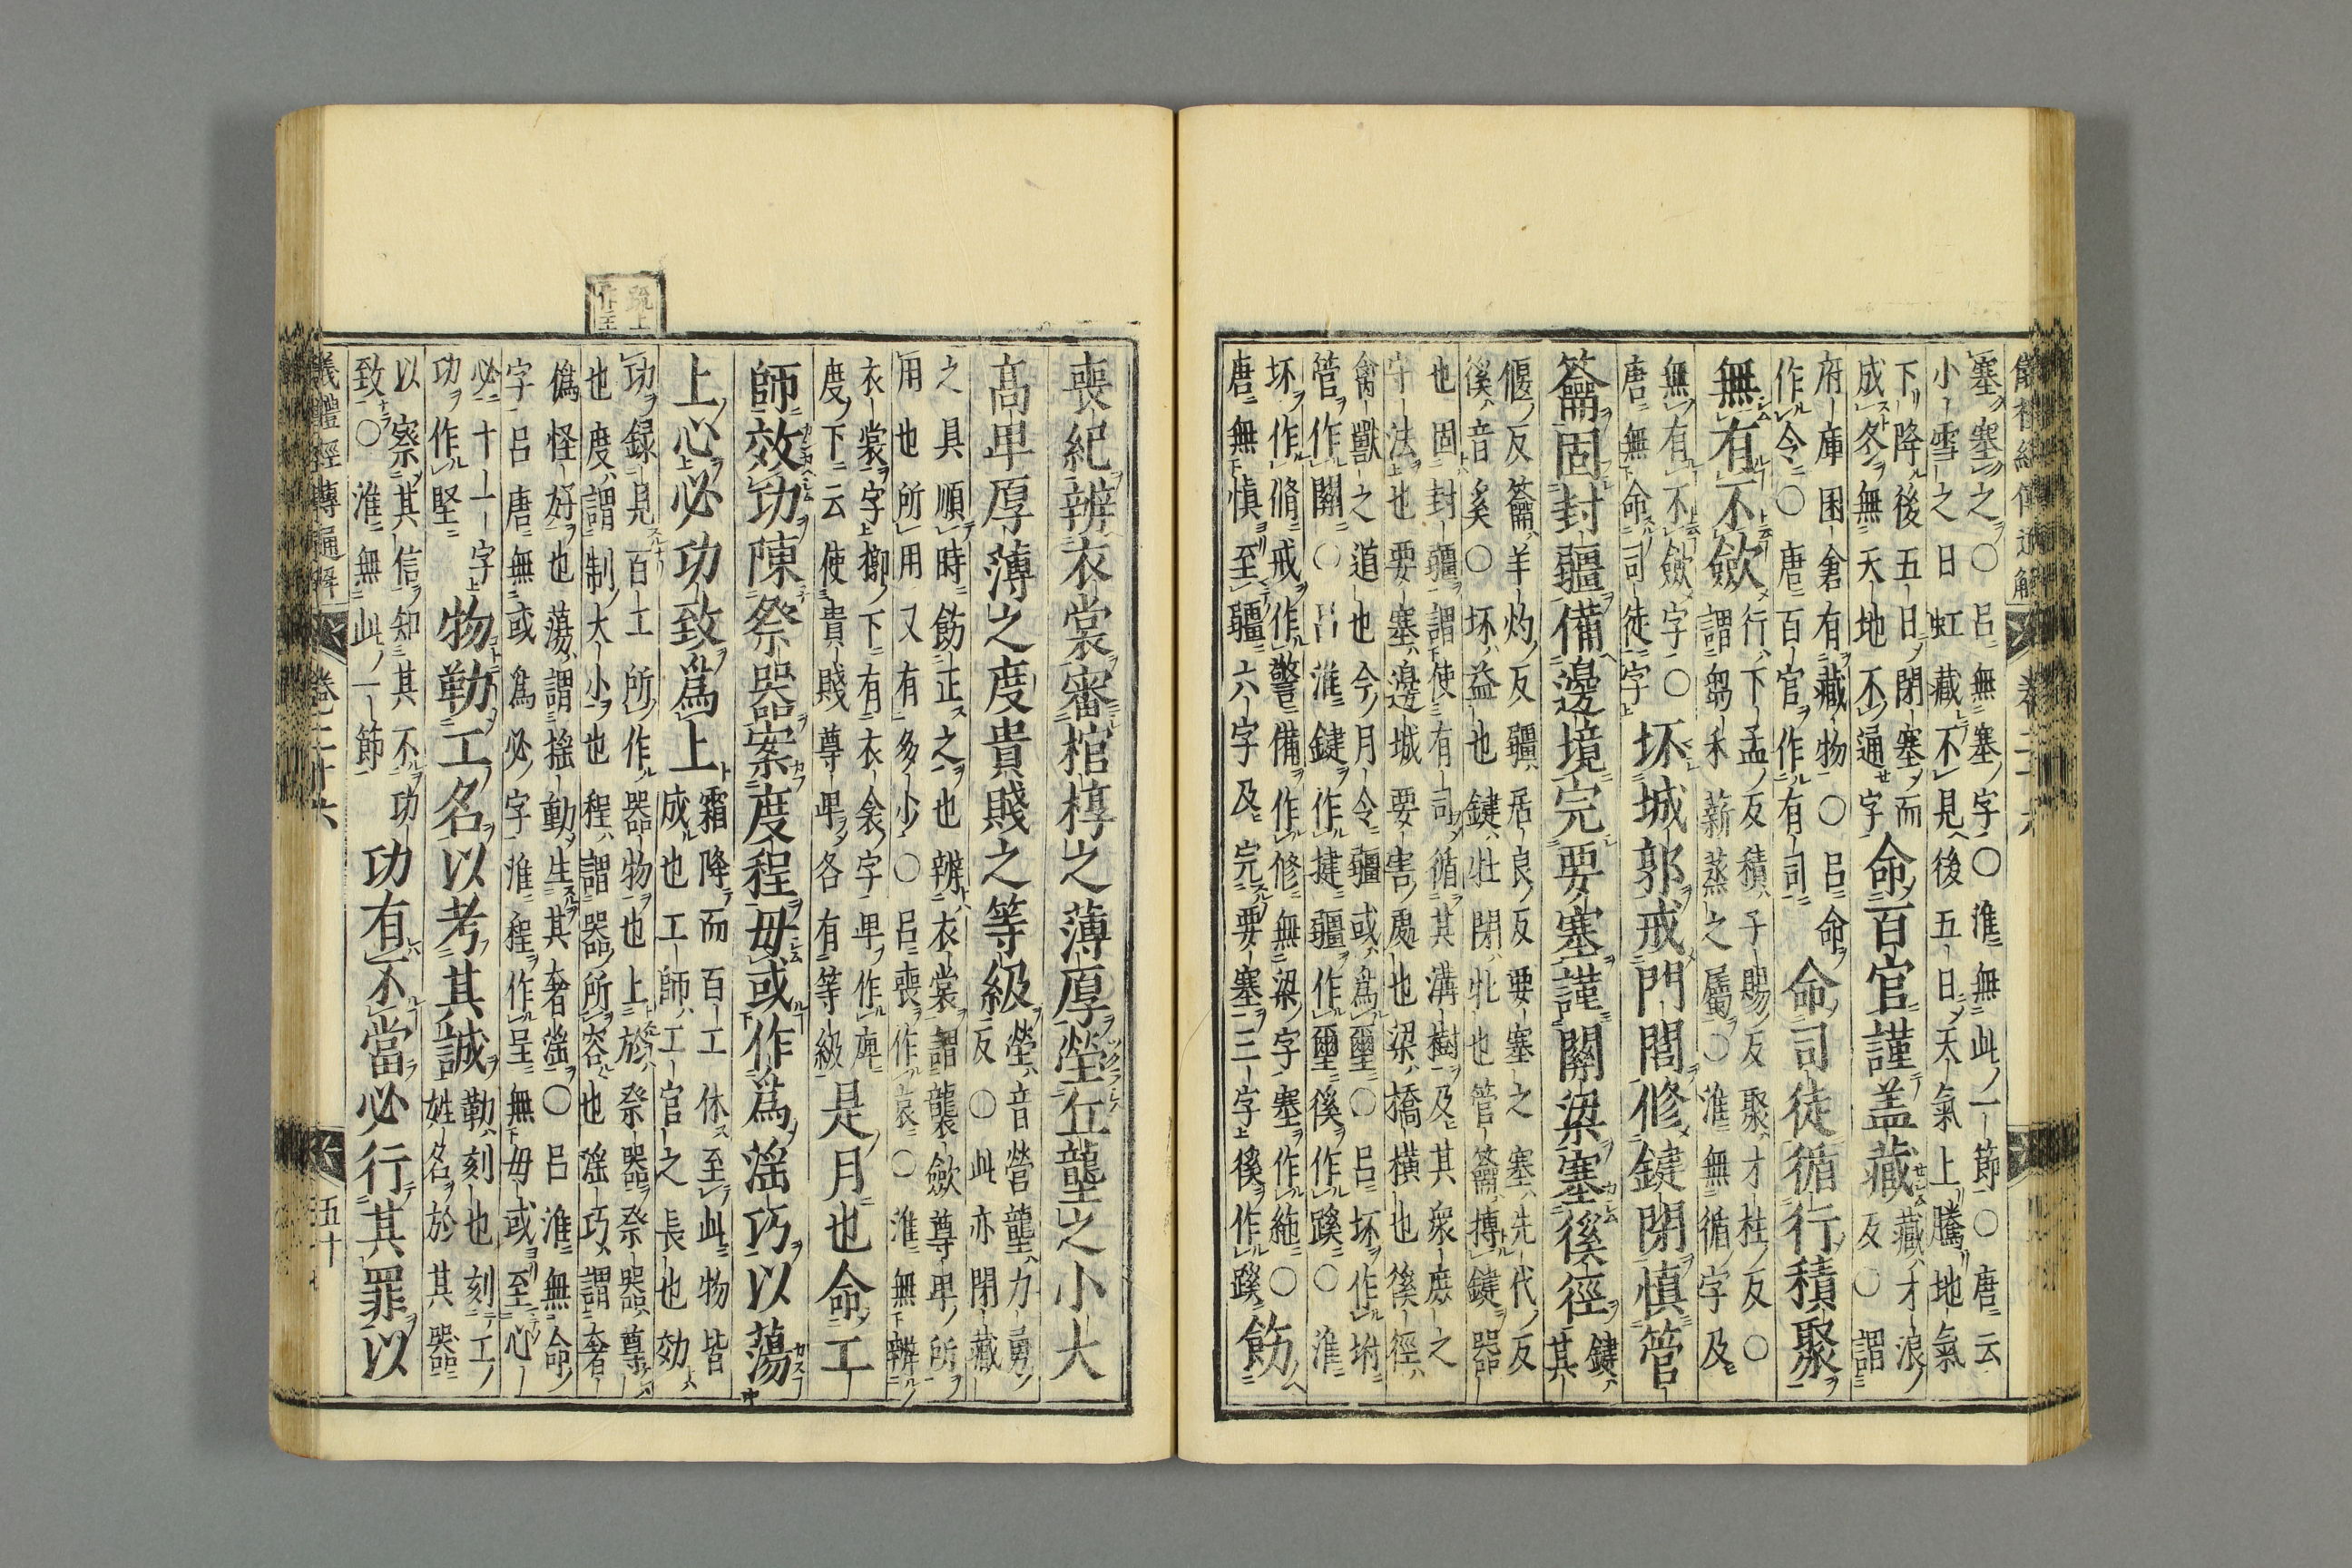 儀禮經傳通解　卷二十六
塞塞之○呂無塞字○淮無此一節○唐云
小雪之日虹藏不見後五日天氣上騰地氣
下降後五日閉塞而
成冬無天地不通字
命百官謹盖藏
藏才浪
反○謂
府庫囷倉有藏物○呂命
作令○唐百官作有司
命司徒循行積聚
無有不斂
行下孟反積子賜反聚才柱反○
謂芻禾薪蒸之屬○淮無循字及
無有不斂字○
唐無命司徒字
坏城郭戒門閭修鍵閉慎管
籥固封疆備邊境完要塞謹關梁塞徯徑
鍵
其
偃反籥羊灼反疆居良反要塞之塞先代反
徯音奚○坏益也鍵牡閉牝也管籥搏鍵器
也固封疆謂使有司循其溝樹及其衆庶之
守法也要塞邊城要害處也梁橋横也徯徑
禽獸之道也今月令疆或為璽○呂坏作坿
管作關○呂淮鍵作揵疆作璽徯作蹊○淮
坏作脩戒作警備作修無梁字塞作絁○
唐無慎至疆六字及完要塞三字徯作蹊
飭
喪紀辨衣裳審棺椁之薄厚塋丘壟之小大
高卑厚薄之度貴賤之等級
塋音營壟力勇
反○此亦閉藏
之具順時飭正之也辨衣裳謂襲斂尊卑所
用也所用又有多少○呂喪作哀○淮無辨
衣裳字棚下有衣衾字卑作庳
度下云使貴賤尊卑各有等級
是月也命工
師效功陳祭器案度程毋或作爲滛巧以蕩
上心必功致爲上
霜降而百工休至此物皆
成也工師工官之長也効
功録見百工所作器物也上於祭器祭器尊
也度謂制大小也程謂器所容也滛巧謂奢
僞怪好也蕩謂摇動生其奢滛○呂淮無命
字呂唐無或爲必字淮程作呈無毋或至心
必十一字
功作堅
物勒工名以考其誠
勒刻也刻工
姓名於其器
以察其信知其不功
致○淮無此一節
功有不當必行其罪以
疏上
作王
儀禮經傳通解　卷二十六　五十